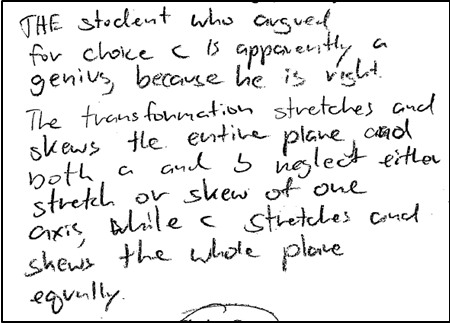 THE student who argued
for choice c is apparently a
genius, because he is right.
The transformation stretches and
skews the entire plane and
both a and b neglect either
stretch or skew of one
axis, while c stretches and
skews the whole plane
equally.